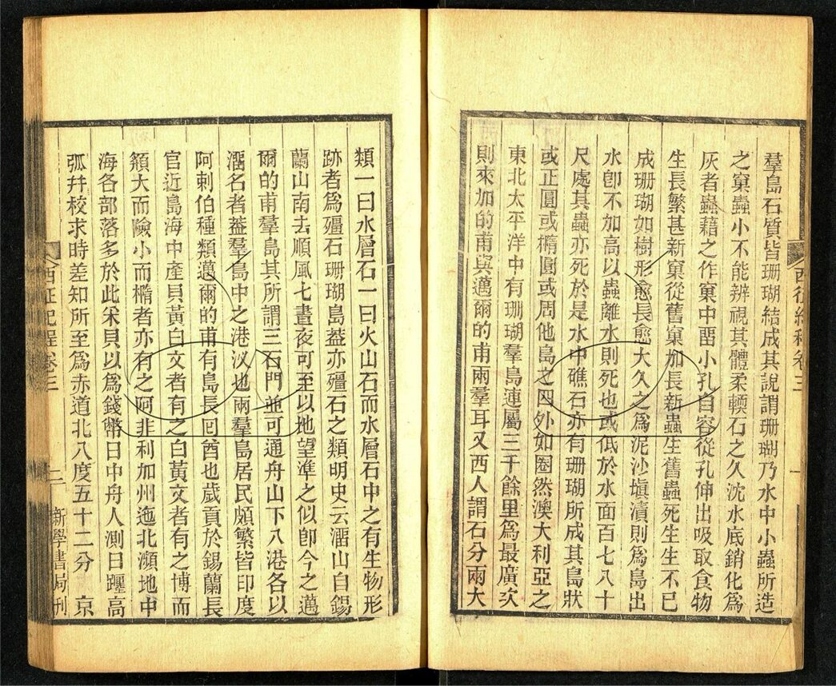 羣島石質皆珊瑚結成其說謂珊瑚乃水中小蟲所造
之窠蟲小不能辨視其體柔輭石之久沈水底銷化爲
灰者蟲藉之作窠中畱小孔自容從孔伸出吸取食物
生長繁甚新窠從舊窠加長新蟲生舊蟲死生生不已
成珊瑚如樹形愈長愈大久之爲泥沙塡漬則爲島出
水卽不加高以蟲離水則死也或低於水面百七八十
尺處其蟲亦死於是水中礁石亦有珊瑚所成其島狀
或正圓或橢圓或周他島之四外如圈然澳大利亞之
東北太平洋中有珊瑚羣島連屬三千餘里爲最廣次
則來加的甫與邁爾的甫兩羣耳又西人謂石分兩大
類一曰水層石一曰火山石而水層石中之有生物形
跡者爲殭石珊瑚島葢亦殭石之類明史云溜山自錫
蘭山南去順風七晝夜可至以地望準之似卽今之邁
爾的甫羣島其所謂三石門並可通舟山下八港各以
溜名者葢羣島中之港汊也兩羣島居民頗繁皆印度
阿刺伯種類邁爾的甫有島長囘酋也歲貢於錫蘭長
官近島海中產貝黃白文者有之白黃文者有之博而
頯大而險小而橢者亦有之阿非利加州迤北瀕地中
海各部落多於此釆貝以爲錢幣日中舟人測日躔高
弧幷校求時差知所至爲赤道北八度五十二分 京
西征紀程卷三
二 新學書局刋